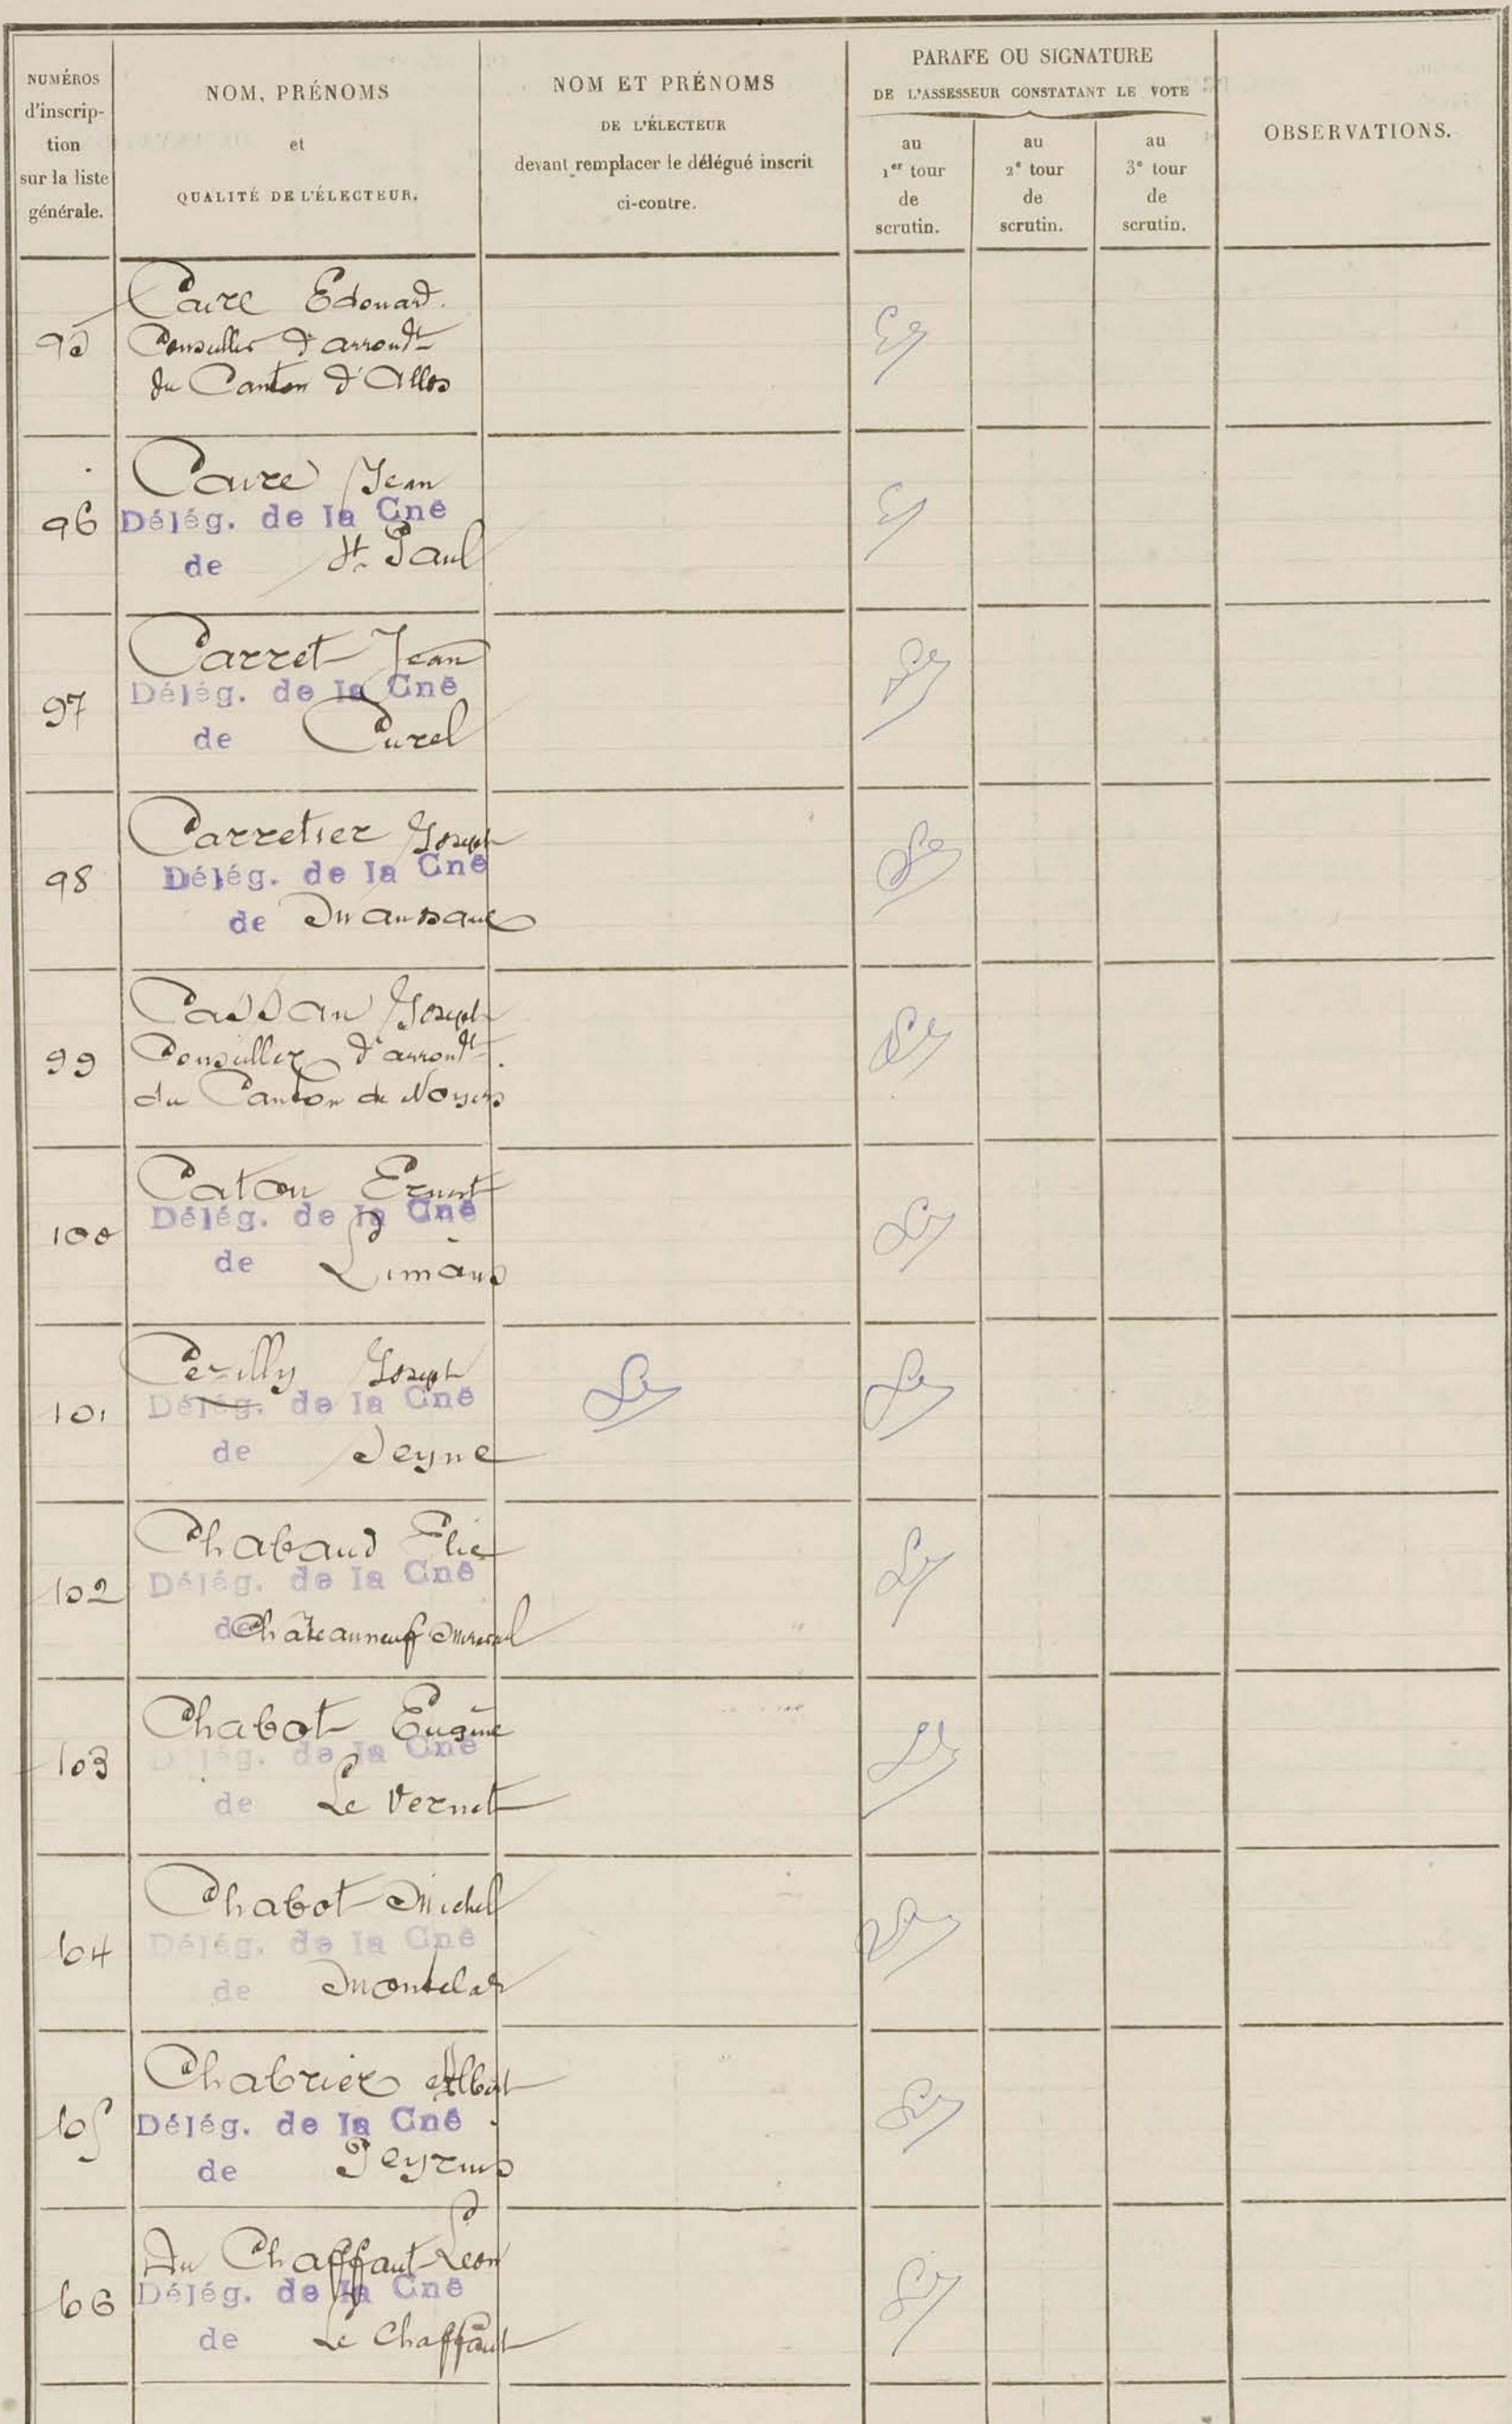 NUMÉROS
d'inscrip-
tion
sur la liste
générale.
NOM, PRÉNOMS
et
QUALITÉ DE L'ÉLECTEUR.
NOM ET PRÉNOMS
DE L'ÉLECTEUR
devant remplacer le délégué inscrit
ci-contre.
PARAFE OU SIGNATURE
DE L'ASSESSEUR CONSTATANT LE VOTE
au
1er tour
de
scrutin.
au
2e tour
de
scrutin.
au
3e tour
de
scrutin.
OBSERVATIONS.
95
Caire Edouard.
Conseiller d'arrondt
du Canton d'Allos
96
Caire Jean
Délég. de la Cne
de St Paul
97
Carret Jean
Délég. de la Cne
de Curel
98
Carretier Joseph
Délég. de la Cne
de Mansane
99
Cassan Joseph
Conseiller d'arrondt.
du Canton de Noyers
100
Caton Ernest
Délég. de la Cne
de Limans
101
Joseph
Délég. de la Cne
de Seyne
102
Chabaud Elie
Délég. de la Cne
de Châteauneuf Miravail
103
Chabot Eugène
Délég. de la Cne
de Le Vernet
104
Chabot Michel
Délég. de la Cne
de Montclar
105
Chabrier Albert
Délég. de la Cne
de Peyruis
106
Du Chaffaut Léon
Délég. de la Cne
de Le Chaffaut